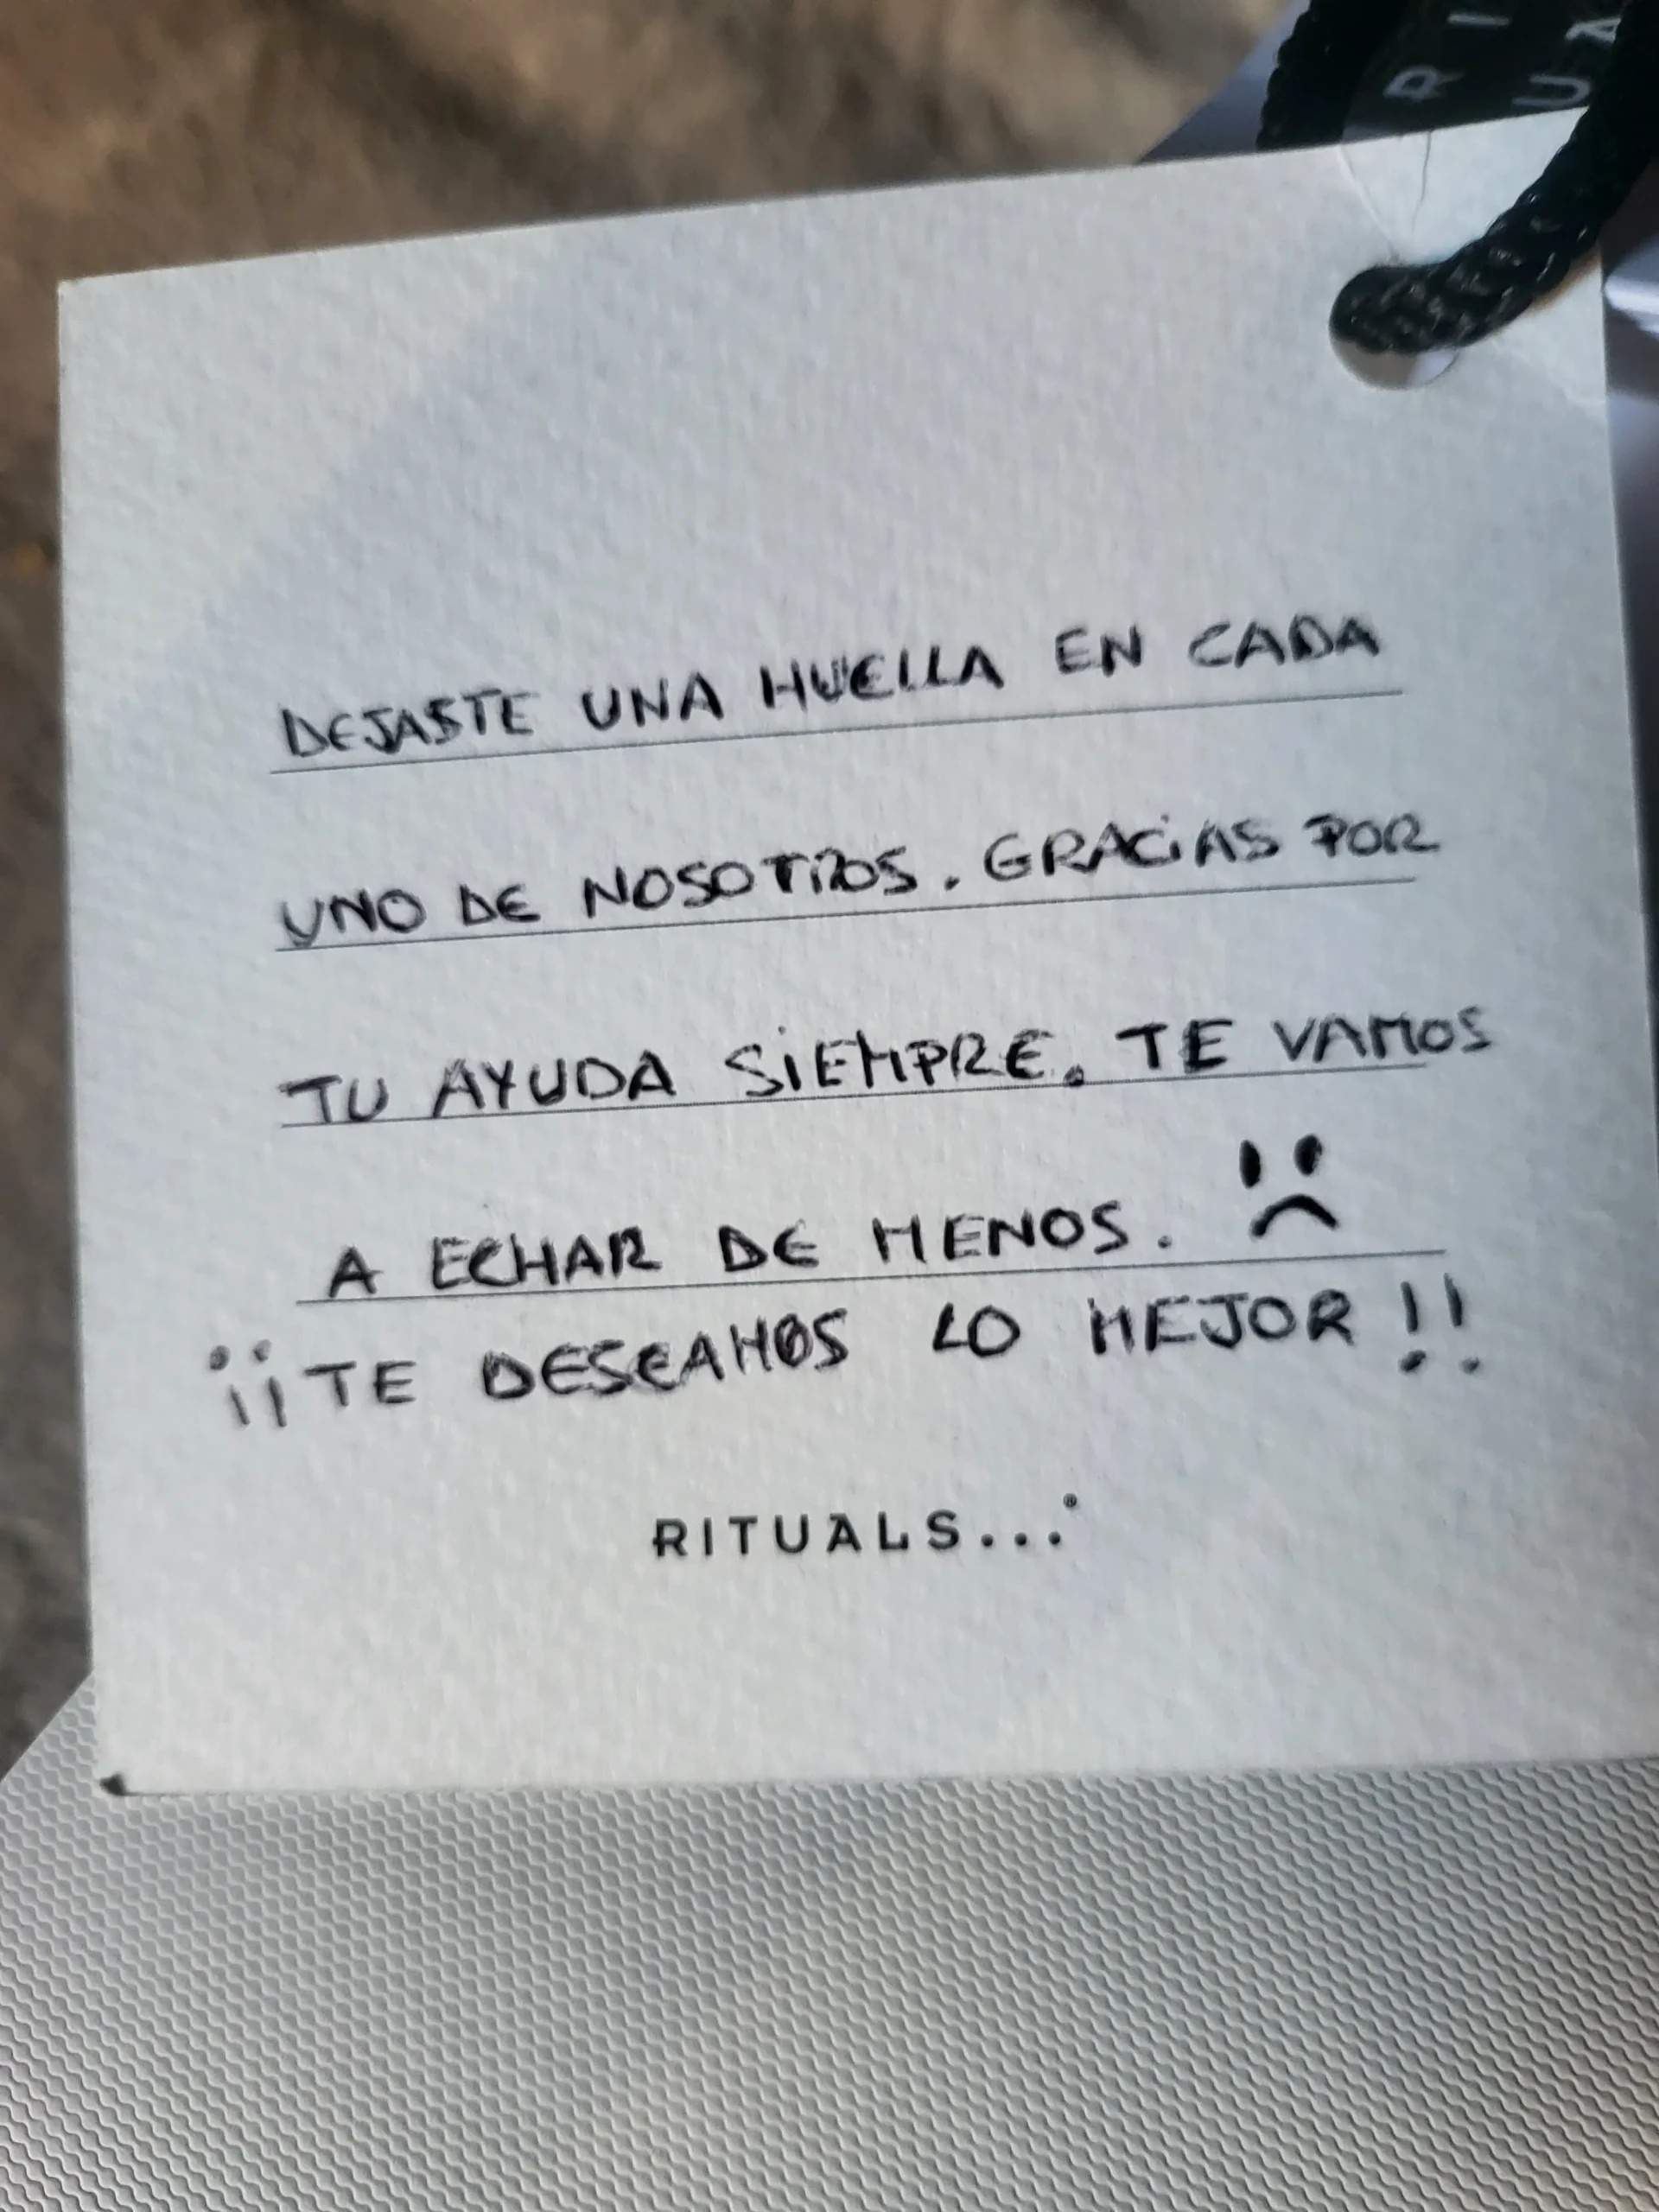 RI
UA
DEJASTE UNA HUELLA EN CADA
UNO DE NOSOTROS. GRACIAS POR
TU AYUDA SIEMPRE. TE VAMOS
A ECHAR DE MENOS. :(
¡¡TE DESEAMOS LO MEJOR!!
RITUALS...®